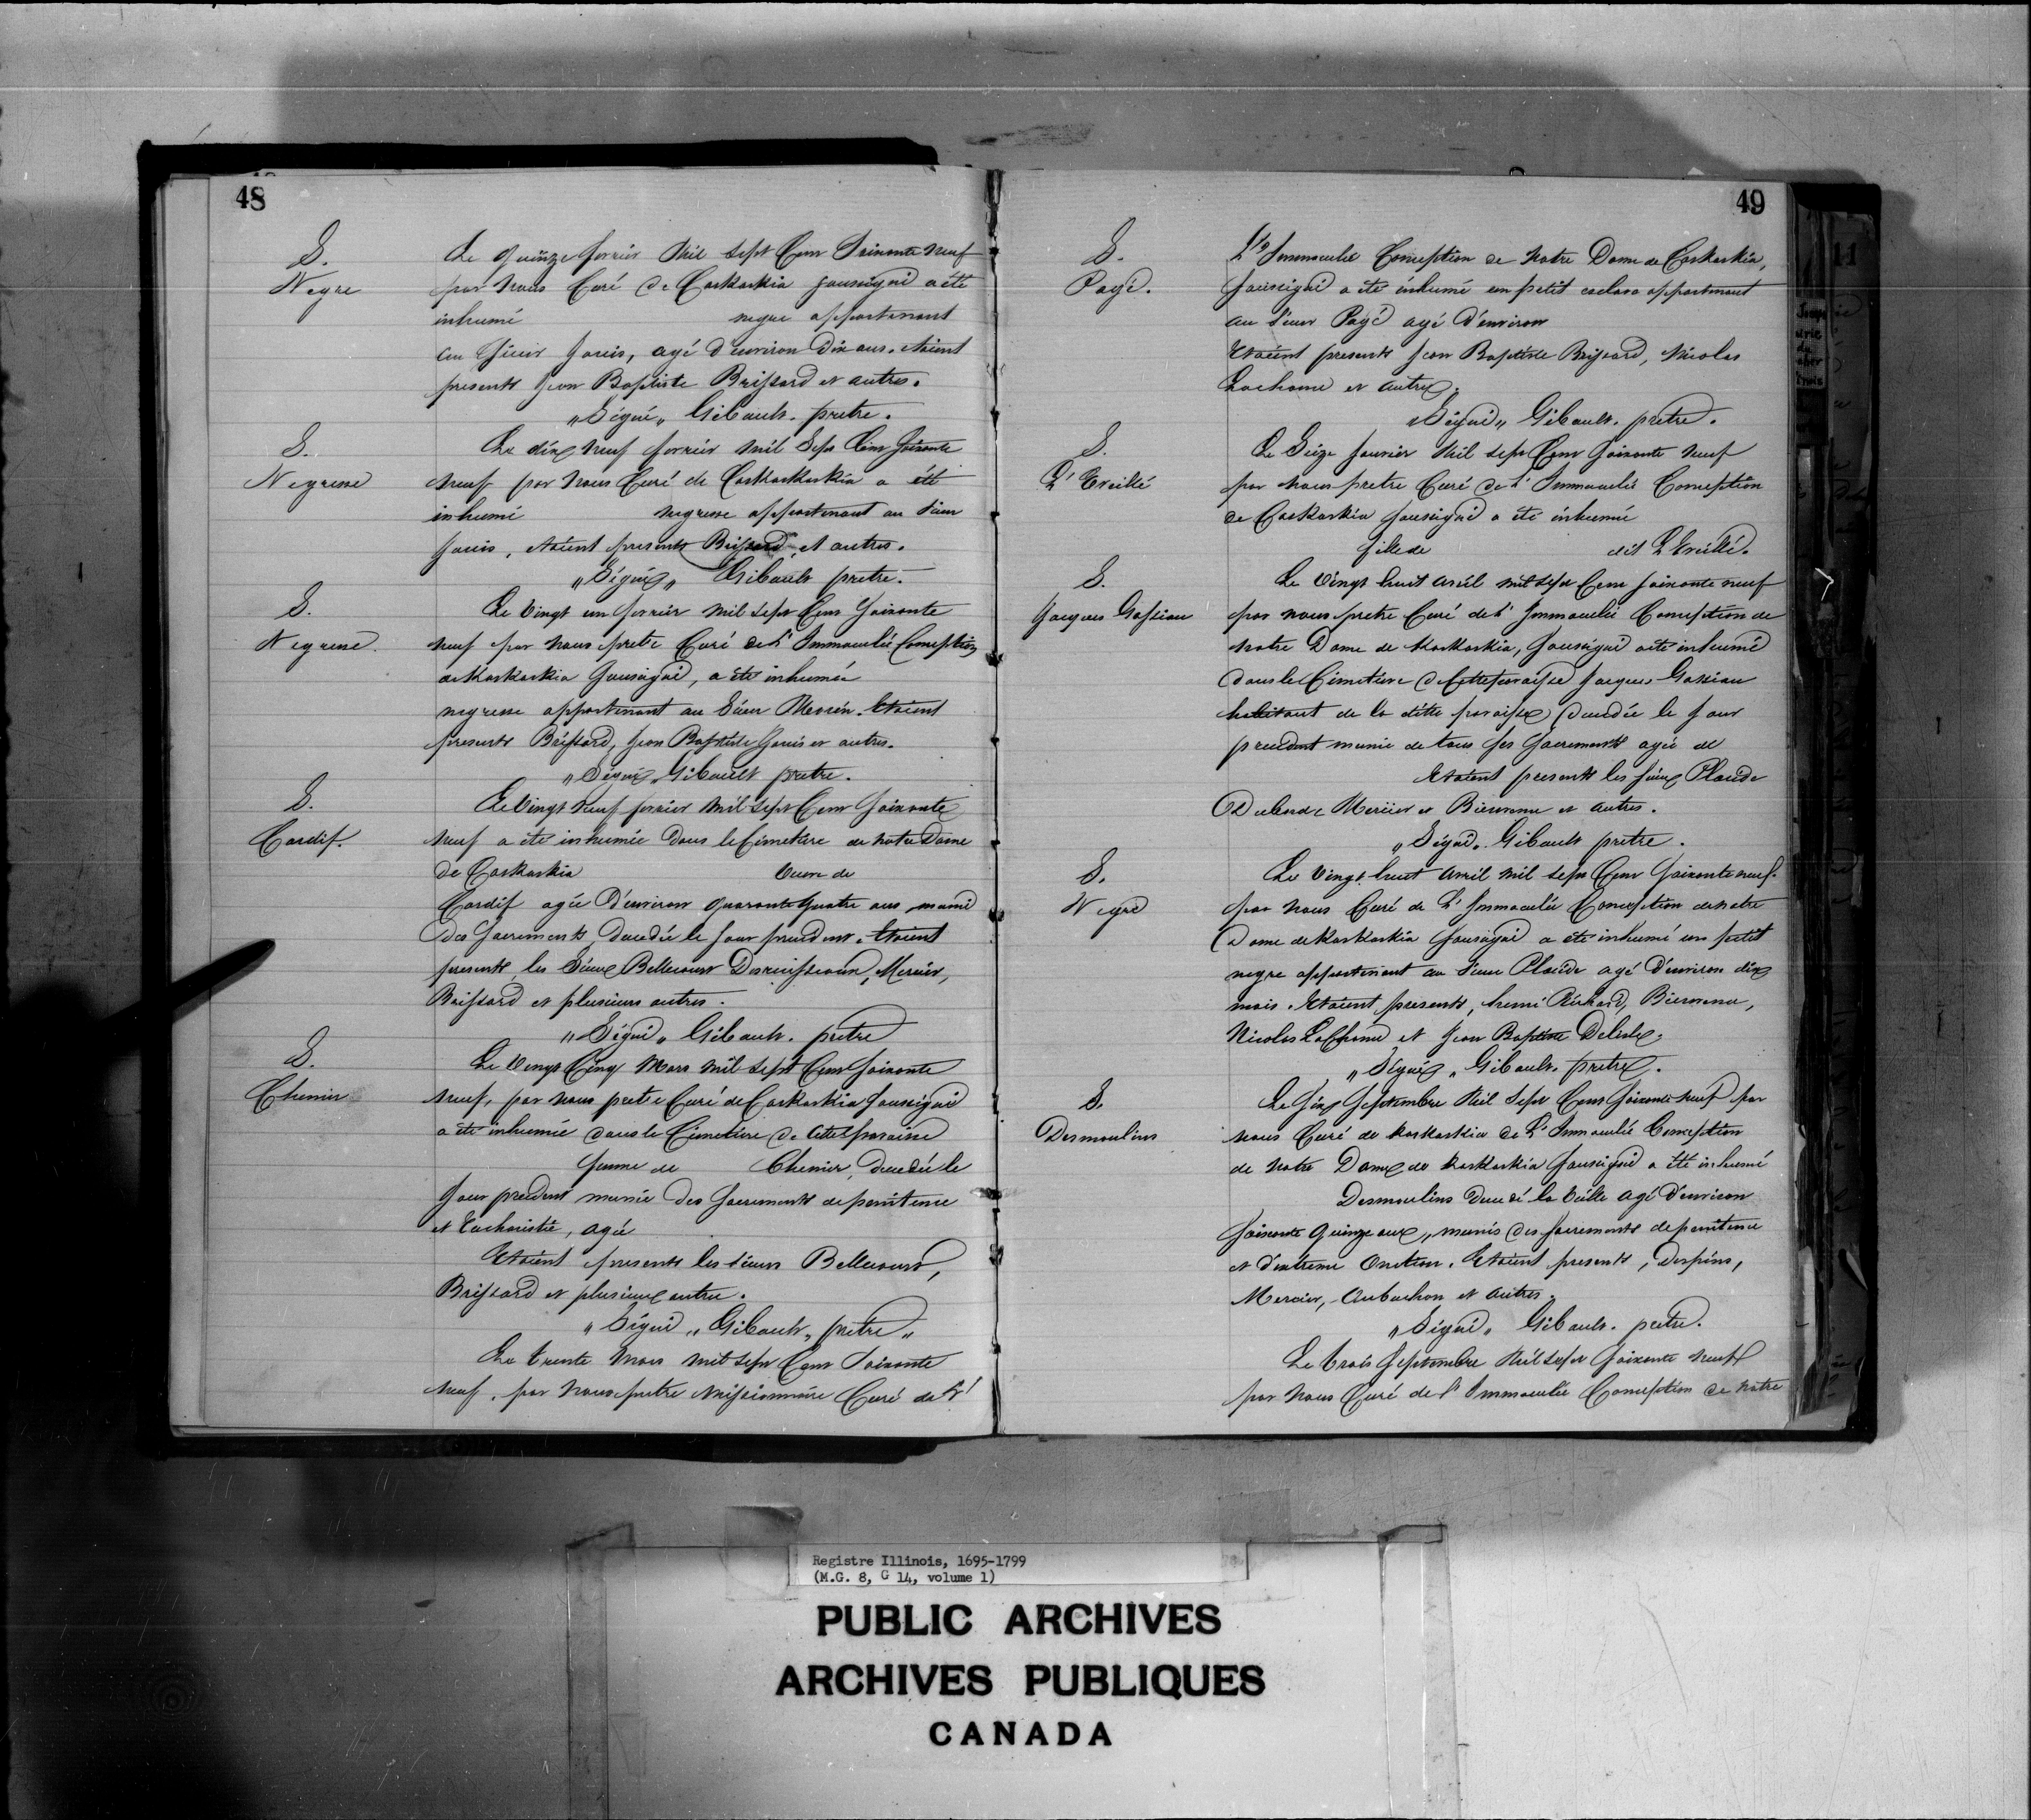 48
S.
Negre
Le quinze fevrier Mil Sept Cent Soixante Neuf
par Nous Curé de Caskaskia soussigné a été
inhumé negre appartenant
au Sieur Janis, agé d'environ Dix ans. étaient
presents Jean Baptiste Brissard et autres.
"Signé" Gibault. pretre.
S.
Negresse
Le dix neuf fevrier mil Sept Cent Soixante
Neuf par Nous Curé de Caskaskaskia a été
inhumé negresse appartenant au Sieur
Janis, étaient presents Brissard, et autres.
"Signé" Gibault pretre.
S.
Negresse.
Le Vingt un fevrier Mil Sept Cent Soixante
neuf par Nous pretre Curé de L'Immaculée Conception
de Kaskaskia Soussigné, a été inhumée
negresse appartenant au Sieur Etaient
presents Brissard, Jean Baptiste Janis et autres.
"Signé" Gibault pretre.
S.
Cardif.
Le Vingt Neuf fevrier Mil Sept Cent Soixante
Neuf a été inhumée Dans le Cimetiere de Notre Dame
De Caskaskia Veuve de
Cardif agée D'environ quarante quatre ans munie
des Sacrements, decedée le Jour precedent. Etaient
presents, les Sieurs Bellecourt Mercier,
Brissard et plusieurs autres.
"Signé" Gibault. prêtre
S.
Chenier
Le Vingt Cinq Mars Mil Sept Cent Soixante
Neuf, par Nous pretre Curé de Caskaskia Soussigné
a été inhumée dans le Cimetiere de Cette paroisse
femme de Chenier, decedée le
Jour precedent munie des Sacrements de penitence
et Eucharistie, agée
Etaient presents les Sieurs Bellecourt,
Brissard et plusieurs autres.
"Signé" "Gibault" prêtre"
Le trente Mars Mil Sept Cent Soixante
Neuf, par Nous pretre Missionnaire Curé de L'
49
S.
Pagé.
L'Immaculée Conception de Notre Dame de Caskaskia,
Soussigné a été inhumé un petit esclave appartenant
au Sieur Pagé agé d'environ
Etaient presents Jean Baptiste Brissard, Nicolas
Lachance et autres.
"Signé" Gibault. prêtre.
S.
L'Eveillé
Le Seize Janvier Mil Sept Cent Soixante Neuf
par Nous pretre Curé de L'Immaculée Conception
de Caskaskia Soussigné a été inhumé
fils de dit L'Eveillé.
S.
Jacques Gassiau
Le Vingt huit avril mil Sept Cent Soixante neuf
par nous pretre Curé de L'Immaculée Conception de
Notre Dame de Kaskaskia, Soussigné a été inhumé
dans le Cimetiere de Cette paroisse Jacques Gassiau
habitant de la dite paroisse decedée le Jour
precedent munie de tous Ses Sacrements agée de
Etaient presents les Sieurs Placide
Mercier et Bienvenu et autres.
"Signé" Gibault pretre.
S.
Negre
Le Vingt huit avril Mil Sept Cent Soixante neuf.
par Nous Curé de L'Immaculée Conception de Notre
Dame de Kaskaskia Soussigné a été inhumé un petit
negre appartenant au Sieur Placide agé d'environ dix
mois. Etaient presents, Richard, Bienvenu,
Nicolas LaChance et Jean Baptiste Delisle.
"Signé" Gibault pretre.
S.
Desmoulins
Le Six Septembre Mil Sept Cent Soixante Neuf par
Nous Curé de Kaskaskia de L'Immaculée Conception
de Notre Dame de Kaskaskia Soussigné a été inhumé
Desmoulins decedé la Veille agé d'environ
Soixante quinze ans, munis des Sacrements de penitence
et d'extreme Onction. Etaient presents, Despins,
Mercier, Aubuchon et autres.
"Signé" Gibault. pretre.
Le trois Septembre Mil Sept Soixante Neuf
par Nous Curé de l'Immaculée Conception de Notre
11
Registre Illinois, 1695-1799
(M.G. 8, G 14, volume 1)
PUBLIC ARCHIVES
ARCHIVES PUBLIQUES
CANADA